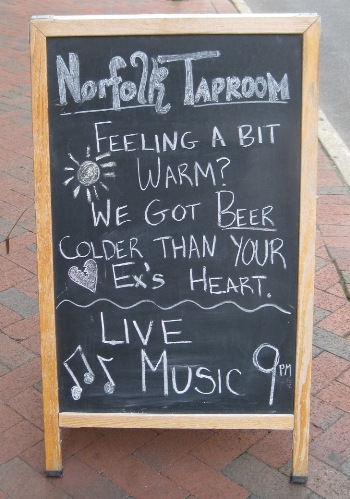 Norfolk Taproom
Feeling a bit
Warm?
We Got Beer
Colder than your
Ex's Heart.
Live
Music 9PM